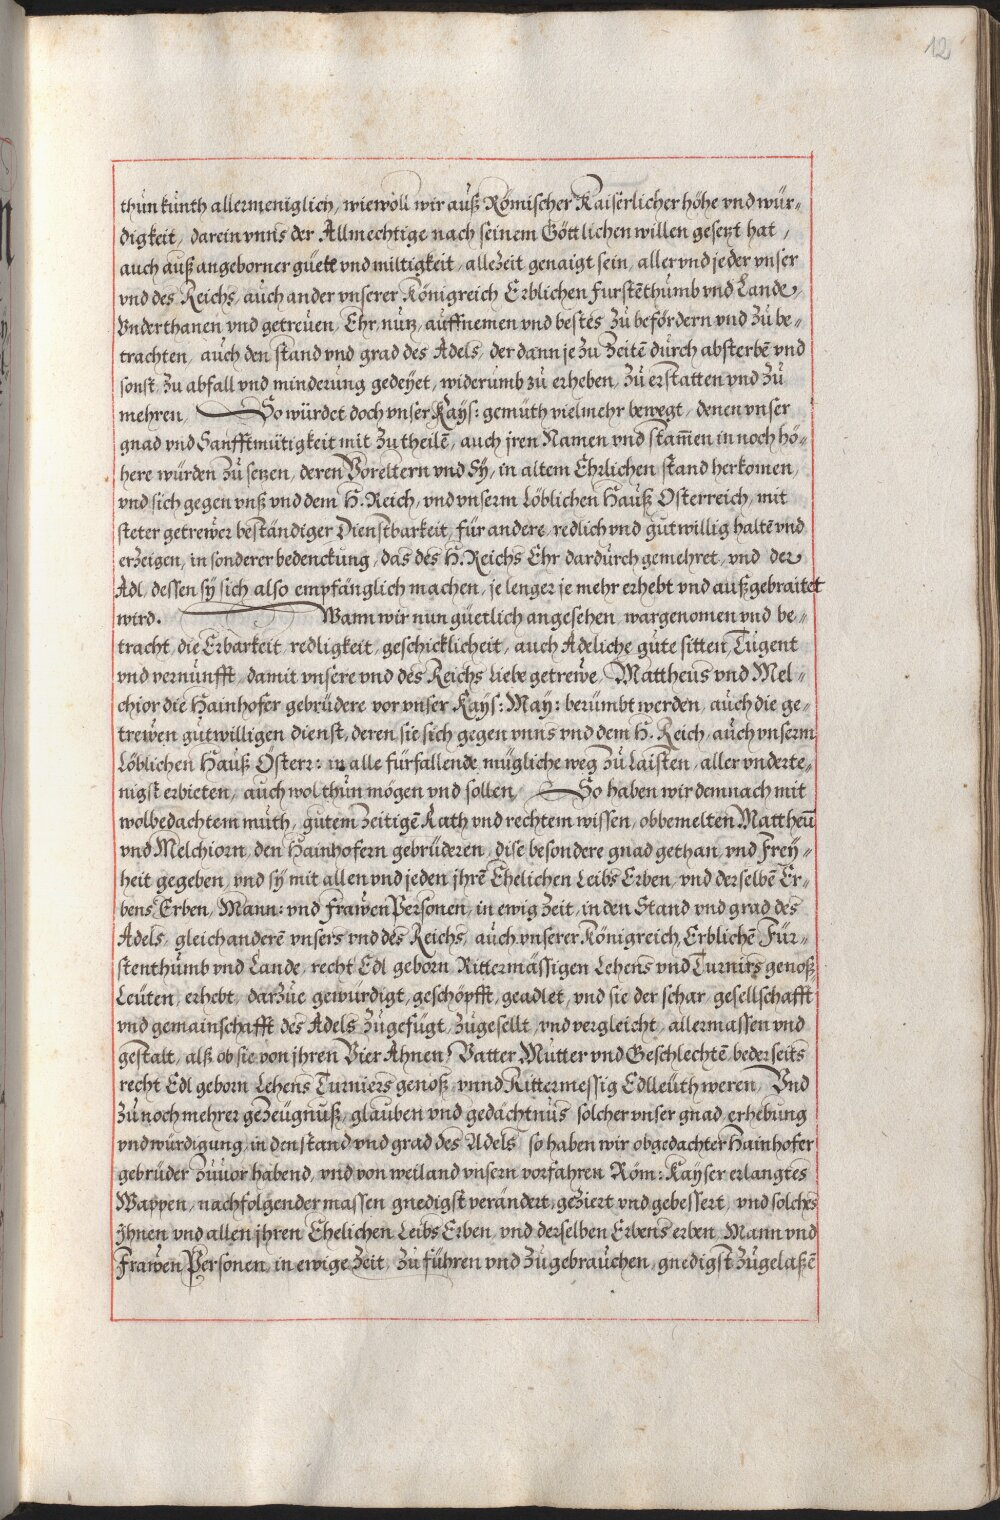 12
thun kunth allermeniglich, wiewoll wir auß Römischer Kaiserlicher höhe vnd wür-
digkeit, darein vnns der Allmechtige nach seinem Göttlichen willen gesetzt hat,
auch auß angeborner güete vnd miltigkeit, alleZeit genaigt sein, aller vnd jeder vnser
vnd des Reichs, auch ander vnserer Königreich Erblichen Furstēthumb vnd Lande,
Vnderthanen vnd getreuen, Ehr, nutz, auffnemen vnd bestes Zu befördern vnd Zu be-
trachten, auch den stand vnd grad des Adels, der dann je Zu Zeitē durch absterbē vnd
sonst Zu abfall vnd minderung gedeyet, widerumb zu erheben, Zu erstatten vnd Zu
mehren, So würdet doch vnser Kays: gemüth vielmehr bewegt, denen vnser
gnad vnd Sanfftmütigkeit mit Zu theilē, auch jren Namen vnd stam̄en in noch hö-
here würden Zu setzen, deren Voreltern vnd Sy, in altem Ehrlichen stand herkomen,
vnd sich gegen vnß vnd dem H. Reich, vnd vnserm Löblichen Hauß Osterreich, mit
steter getrewer beständiger Dienstbarkeit, für andere redlich vnd gutwillig haltē vnd
erZeigen, in sonderer bedenckung, das des H. Reichs Ehr dardurch gemehret, vnd der
Adl, dessen sy sich also empfänglich machen, je lenger je mehr erhebt vnd außgebraitet
wird. Wann wir nun güetlich angesehen, wargenomen vnd be-
tracht, die Erbarkeit, redligkeit, geschicklicheit, auch Adeliche gute sitten, Tugent
vnd vernunfft, damit vnsere vnd des Reichs liebe getrewe, Mattheus vnd Mel-
chior die Hainhofer gebrüdere vor vnser Kays: May: berümbt werden, auch die ge-
trewen gutwilligen dienst, deren sie sich gegen vnns vnd dem H. Reich, auch vnserm
Löblichen Hauß Österr: in alle fürfallende mügliche weg Zu Laisten, aller vnderte-
nigst erbieten, auch wol thun mögen vnd sollen, So haben wir demnach mit
wolbedachtem muth, gutem Zeitigē Rath vnd rechtem wissen, obbemelten Mattheū
vnd Melchiorn, den Hainhofern gebrüderen, dise besondere gnad gethan, vnd Frey-
heit gegeben, vnd sy mit allen vnd jeden jhrē Ehelichen Leibs Erben, vnd derselbē Er-
bens Erben, Mann: vnd Frawen Personen, in ewig Zeit, in den Stand vnd grad des
Adels, gleich anderē vnsers vnd des Reichs, auch vnserer Königreich, Erblichē Für-
stenthumb vnd Lande, recht Edl geborn Rittermässigen Lehens vnd Turnirs genoß
Leuten, erhebt, darZue gewürdigt, geschöpfft, geadlet, vnd sie der schar, gesellschafft
vnd gemainschafft des Adels Zugefügt, Zugesellt, vnd vergleicht, allermassen vnd
gestalt, alß ob sie von jhren Vier Ahnen, Vatter, Mutter vnd Geschlechtē bederseits
recht Edl geborn Lehens Turniers genoß, vnnd Rittermessig Edlleuth weren, Vnd
Zu noch mehrer geZeugnuß, glauben vnd gedächtnus solcher vnser gnad, erhebung
vnd würdigung, in den stand vnd grad des Adels, so haben wir obgedachter Hainhofer
gebrüder Zuuor habend, vnd von weiland vnsern vorfahren Röm: Kayser erlangtes
Wappen, nachfolgender massen gnedigst verändert, geZiert vnd gebessert, vnd solches
Jhnen vnd allen jhren Ehelichen Leibs Erben, vnd derselben Erbens erben, Mann vnd
Frawen Personen, in ewige Zeit, Zu führen vnd Zugebrauchen, gnedigst Zugelaßē